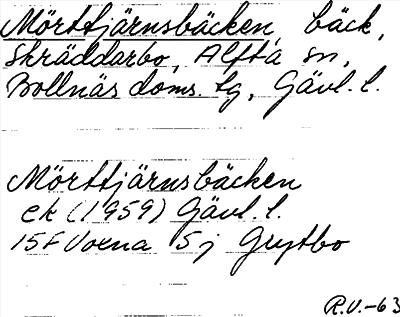 Mörttjärnsbäcken, bäck,
Skräddarbo, Alfta sn,
Bollnäs doms. tg, Gävl. l.
Mörttjärnsbäcken
ek (1959) Gävl. l.
15F Voxna 5j Grytbo
R.V.-63